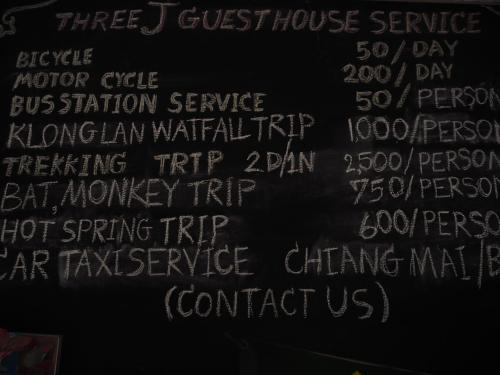 THREE J GUESTHOUSE SERVICE
BICYCLE 50/DAY
MOTOR CYCLE 200/DAY
BUSSTATION SERVICE 50/PERSON
KLONGLAN WATFALL TRIP 1,000/PERSON
TREKKING TRIP 2D/1N 2,500/PERSON
BAT, MONKEY TRIP 750/PERSO
HOT SPRING TRIP 600/PERSO
CAR TAXI SERVICE CHIANG MAI/B
(CONTACT US)